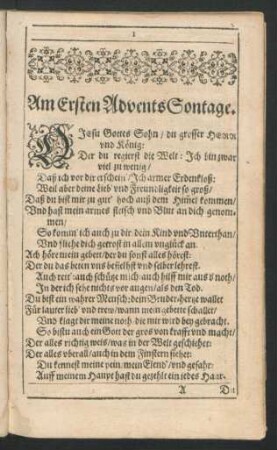 1
Am Ersten Advents Sontage.
O Jesu Gottes Sohn / du grosser HERR
vnd König:
Der du regierst die Welt: Ich bin zwar
viel zu wenig /
Daß ich vor dir erschein / Ich armer Erdenkloß:
Weil aber deine lieb' vnd Freundligkeit so groß /
Daß du bist mir zu gut' hoch auß dem Himel kommen /
Vnd hast mein armes fleisch vnd Blut an dich genom-
men /
So komm' ich auch zu dir dein Kind vnd Vnterthan /
Vnd fliehe dich getrost in allem vnglück an.
Ach höre mein gebett / der du sonst alles hörest:
Der du das beten vns befiehlst vnd selber lehrest.
Auch rett' auch schütze mich auch hilff mir auß d' noth /
In der ich sehe nichts vor augen / als den Tod.
Du bist ein wahrer Mensch; dein Bruder-hertze wallet
Für lauter lieb' vnd trew / wann mein gebette schallet /
Vnd klage dir meine noth die mir wird beygebracht.
So bistu auch ein Gott der gros von krafft vnd macht /
Der alles richtig weis / was in der Welt geschiehet:
Der alles vberall / auch in dem Finstern siehet:
Du kennest meine pein / mein Elend / vnd gefahr:
Auff meinem Haupt hast du gezehlt ein jedes Haar.
A Du